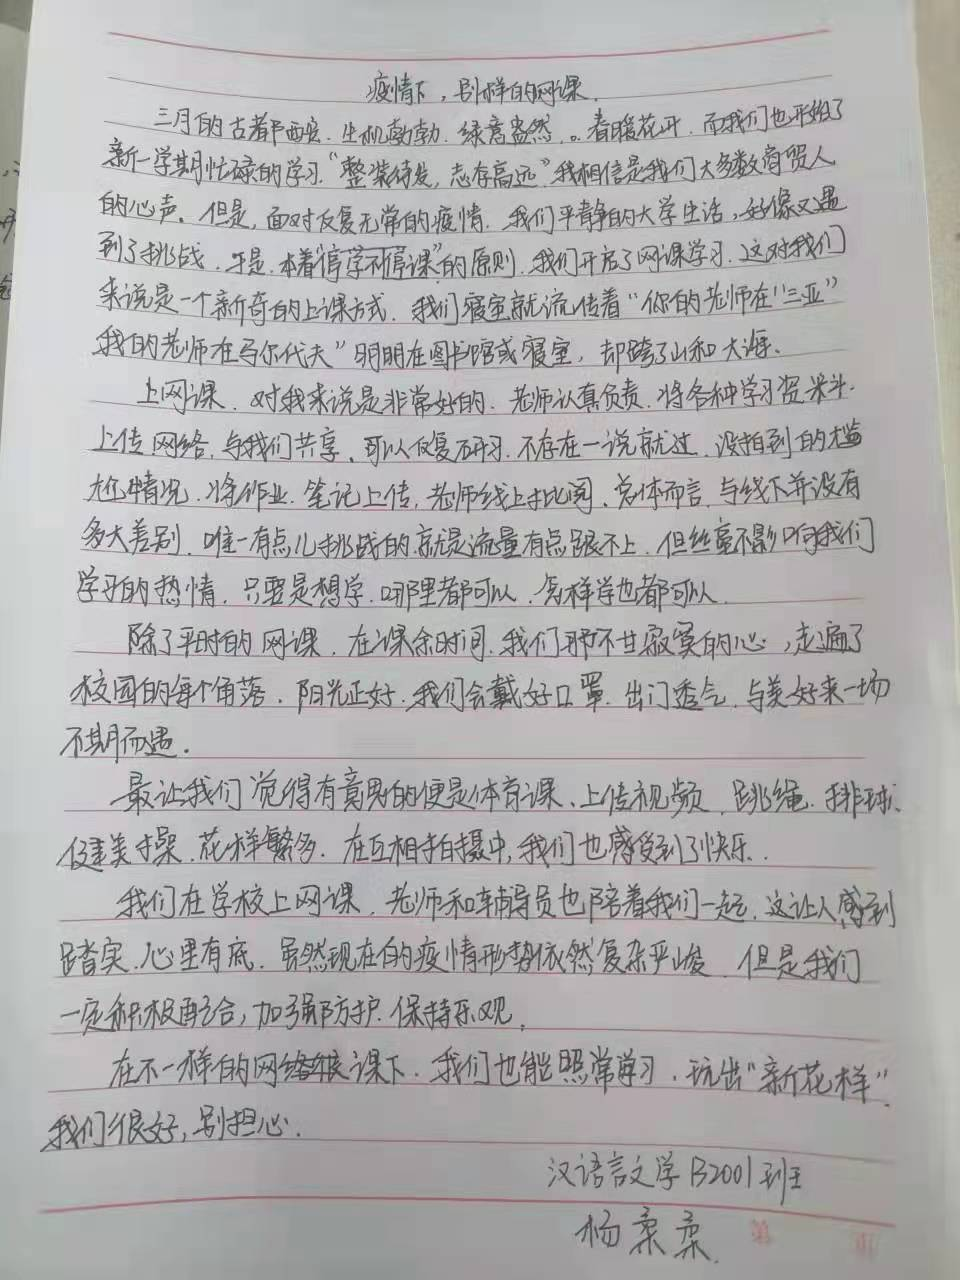 疫情下，别样的网课.
三月的古都西安.生机勃勃.绿意盎然.。春暖花开.而我们也开始了
新一学期忙碌的学习"整装待发,志存高远".我相信是我们大多数商贸人
的心声.但是,面对反复无常的疫情.我们平静的大学生活,好像又遇
到了挑战.于是.本着"停学不停课"的原则.我们开启了网课学习.这对我们
来说是一个新奇的上课方式.我们寝室就流传着"你的老师在"三亚"
我的老师在马尔代夫"明明在图书馆或寝室,却跨了山和大海.
上网课.对我来说是非常好的.老师认真负责.将各种学习资料.
上传网络,与我们共享.可以反复研习.不存在一说就过.没拍到的尴
尬情况.将作业.笔记上传,老师线上批阅.总体而言.与线下并没有
多大差别.唯一有点儿挑战的.就是流量有点跟不上.但丝毫不影响我们
学习的热情.只要是想学.哪里都可以.怎样学也都可以.
除了平时的网课.在课余时间.我们那不甘寂寞的心,走遍了
校园的每个角落.阳光正好.我们会戴好口罩.出门透气.与美好来一场
不期而遇.
最让我们觉得有意思的便是体育课.上传视频.跳绳.排球.
健美操.花样繁多.在互相拍摄中,我们也感受到了快乐.
我们在学校上网课.老师和辅导员也陪着我们一起.这让人感到
踏实.心里有底.虽然现在的疫情形势依然复杂严峻.但是我们
一定积极配合,加强防护.保持乐观.
在不一样的网课下.我们也能照常学习.玩出"新花样".
我们很好,别担心.
汉语言文学B2001班
杨柔柔.
第 页